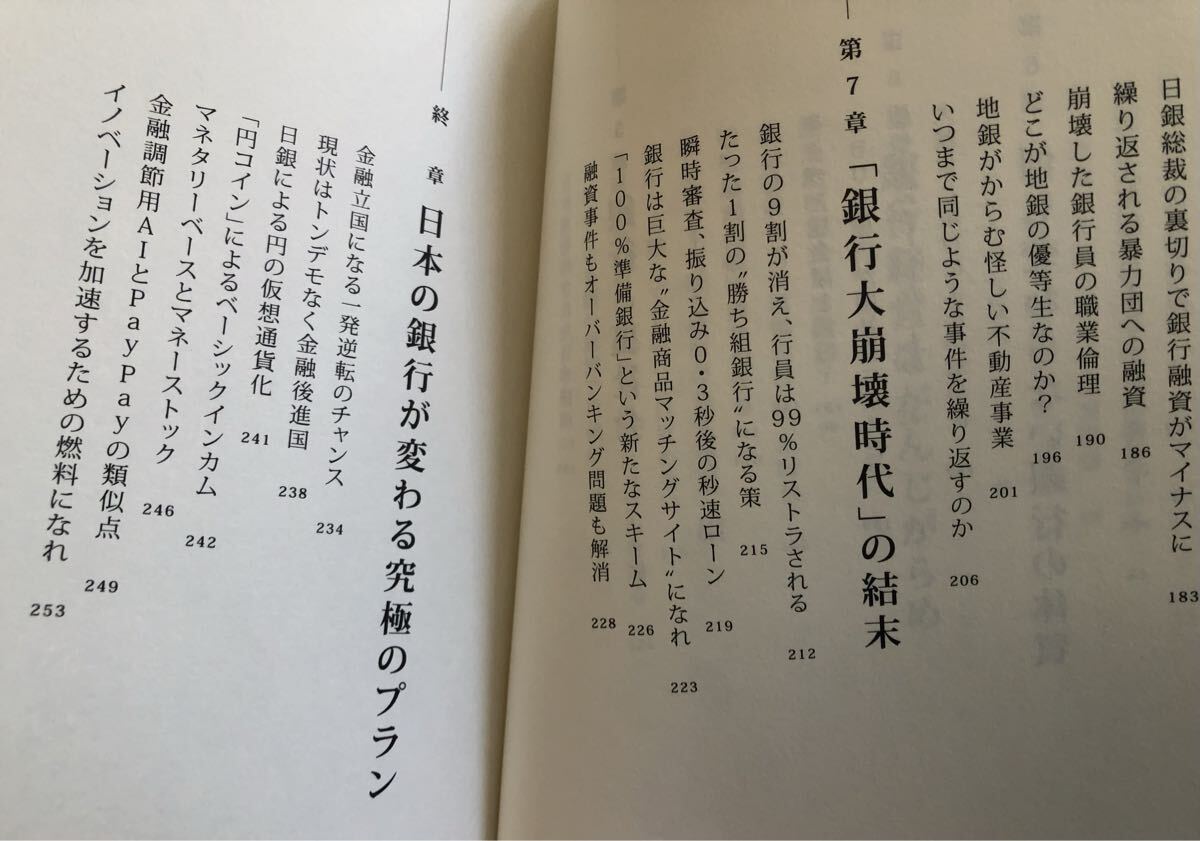 日銀総裁の裏切りで銀行融資がマイナスに 183
繰り返される暴力団への融資 186
崩壊した銀行員の職業倫理 190
どこが地銀の優等生なのか？ 196
地銀がからむ怪しい不動産事業 201
いつまで同じような事件を繰り返すのか 206
第7章 「銀行大崩壊時代」の結末
銀行の9割が消え、行員は99％リストラされる 212
たった1割の〝勝ち組銀行〟になる策 215
瞬時審査、振り込み0・3秒後の秒速ローン 219
銀行は巨大な〝金融商品マッチングサイト〟になれ 223
「100％準備銀行」という新たなスキーム 226
融資事件もオーバーバンキング問題も解消 228
終章 日本の銀行が変わる究極のプラン
金融立国になる一発逆転のチャンス 234
現状はトンデモなく金融後進国 238
日銀による円の仮想通貨化 241
「円コイン」によるベーシックインカム 242
マネタリーベースとマネーストック 246
金融調節用AIとPayPayの類似点 249
イノベーションを加速するための燃料になれ 253